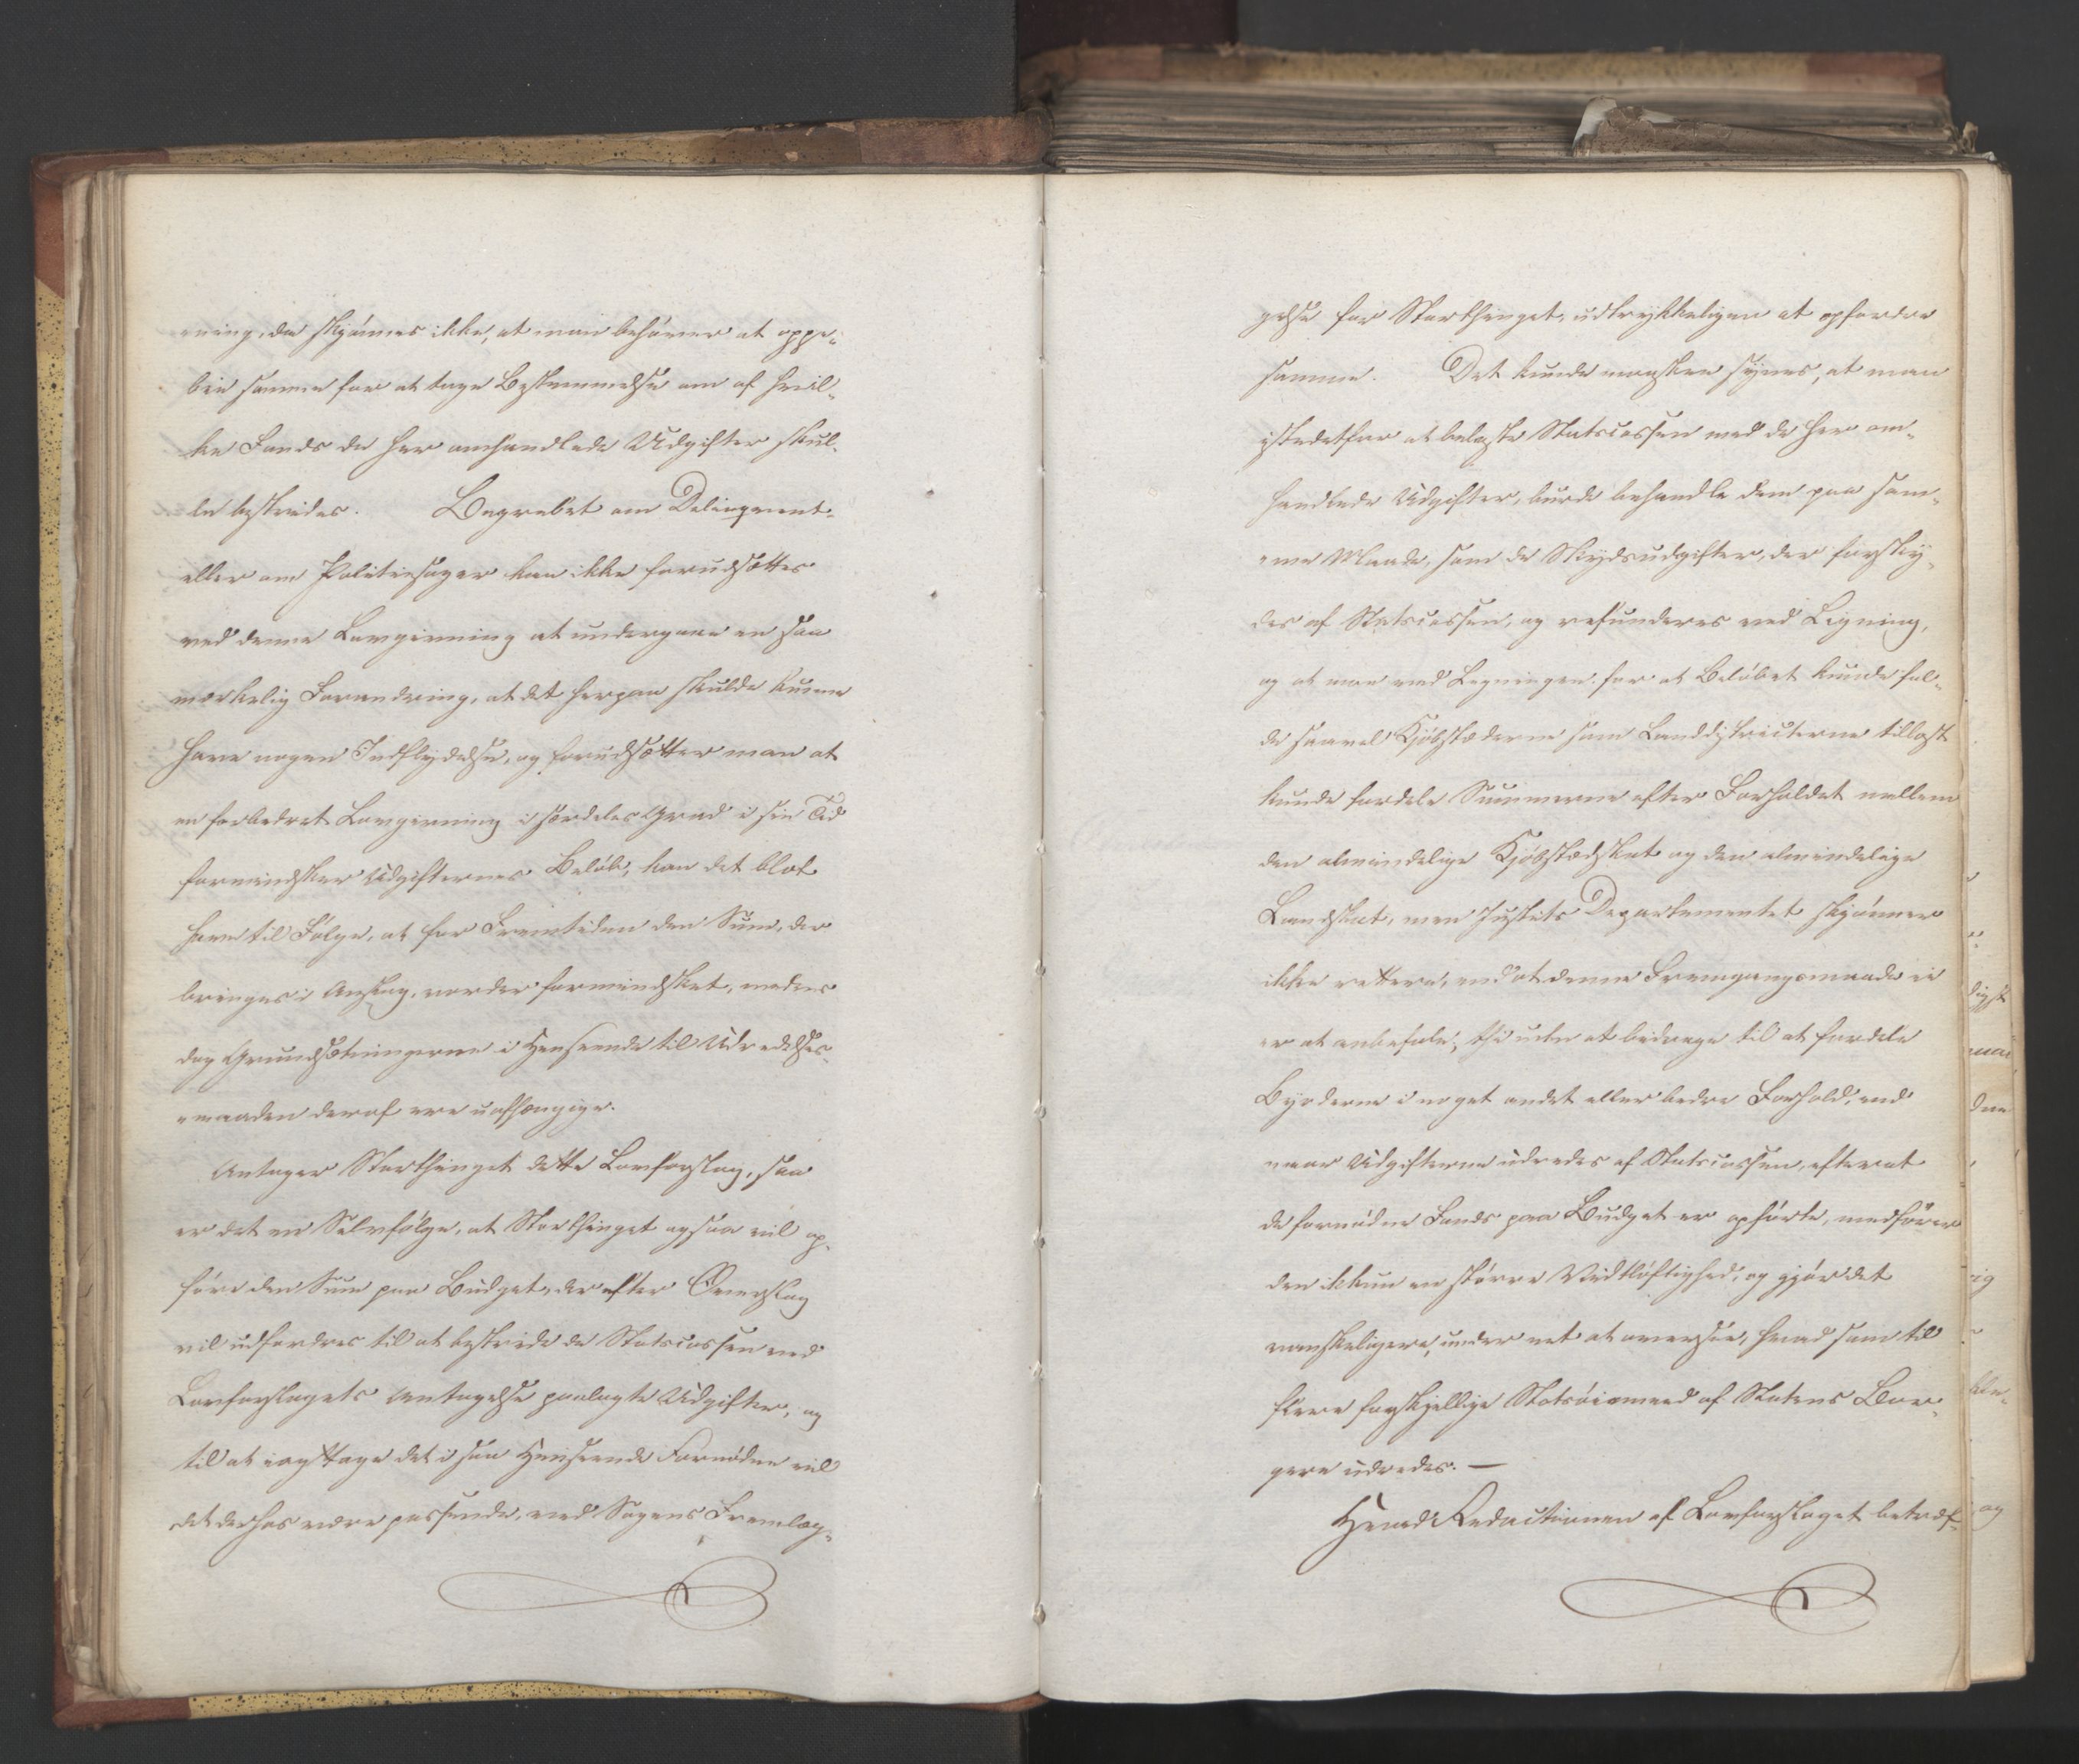 -ning, da skjønnes ikke, at man behøver at oppe-
bie samme for at tage Bestemmelse om af hvil-
ke Fonds de her omhandlede Udgifter skul-
le bestrides. Begrebet om Delinqvent-
eller om Politiesager kan ikke forudsættes
ved denne Lovgivning at undergaae en saa
mærkelig Forandring, at det herpaa skulde kunne
have nogen Indflydelse, og forudsætter man at
en forbedret Lovgivning i særdeles Grad i sin Tid
formindsker Udgifternes Beløb, kan det blot
have til Følge, at for Fremtiden den Sum, der
bringes i Anslag, vorder formindsket, medens
dog Grundsætningerne i Henseende til Udredelses-
-maaden deraf ere uafhængige.
Antager Storthinget dette Lovforslag, saa
er det en Selvfølge, at Storthinget ogsaa vil op-
føre den Sum paa Budget, der efter Overslag
vil udfordres til at bestride de Statscassen ved
Lovforslagets Antagelse paalagte Udgifter, og
til at iagttage det i saa Henseende Fornødne vil
det derhos være passende, ved Sagens Fremlæg-
gelse for Storthinget, udtrykkeligen at opfordre
samme. Det kunde maaskee synes, at man
istedetfor at belaste Statscassen med de her om-
handlede Udgifter, burde behandle dem paa sam-
-me Maade, som de Skydsudgifter, der forsky-
des af Statscassen, og refunderes ved Ligning,
og at man ved Ligningen for at Beløbet kunde fal-
de saavel Kjøbstæderne som Landdistricterne tillast
kunde fordele Summerne efter Forholdet mellem
den almindelige Kjøbstædskat og den almindelige
Landskat, men Justits Departementet skjønner
ikke rettere, end at denne Fremgangsmaade ei
er at anbefale; thi uden at bidrage til at fordele
Byrderne i noget andet eller bedre Forhold, end
naar Udgifterne udredes af Statscassen, efterat
de fornødne Fonds paa Budget er opførte, medfører
den ikkun en større Vidtløftighed, og gjør det
vanskeligere, under eet at oversee, hvad som til
flere forskjellige Statsøiemeed af Statens Bor-
gere udredes. —
Hvad Redactionen af Lovforslaget betræf-